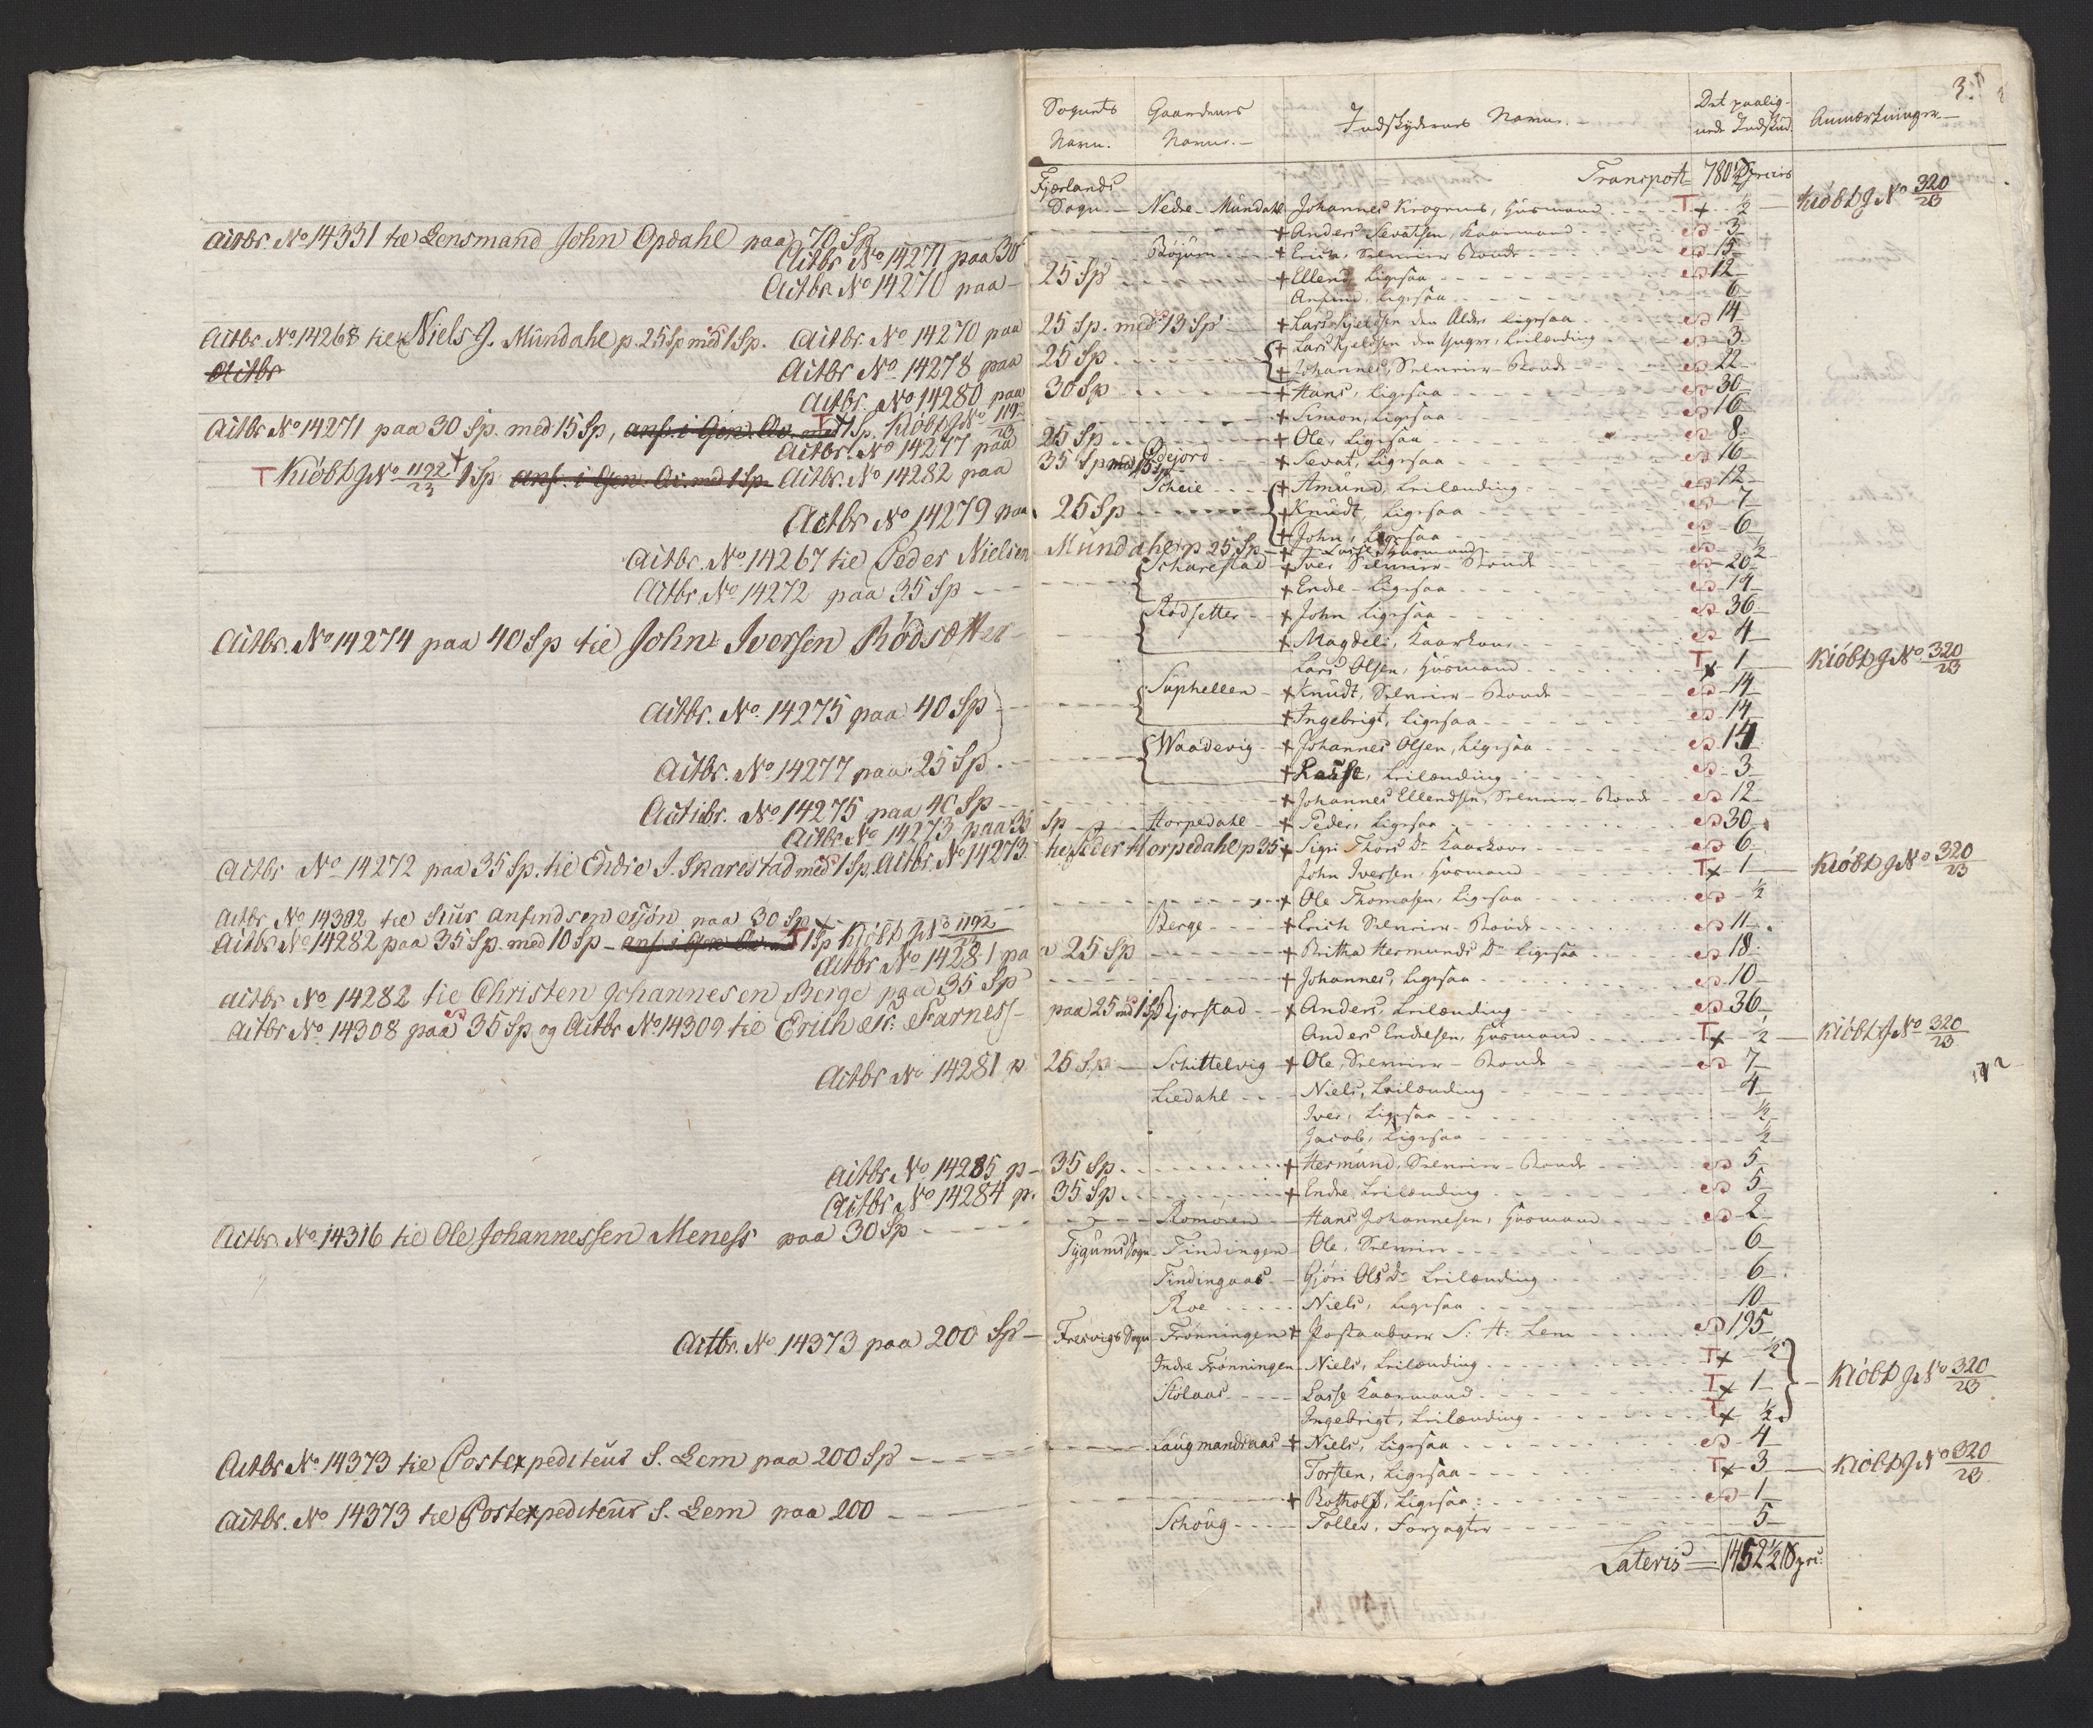 3.
Sognets Navn. Gaardenes Navne. Indskydernes Navne. Det paalignede Indskud. Anmærkninger
Transport 780½ Species
Fjærlands Sogn Nedre Mundahl Johannes Krogenes, Huusmand T x ½ Kiöbt J No 320/23
Actbr No 14331 til Lensmand John Opdahl paa 70 Sp + Anders Sevatsen, Kaarmand 3
Actbr No 14271 paa 30 Böjum + Erich, Selveier Bonde 15
Actbr No 14270 paa 25 Sp + Ellend Ligesaa 12
Anfind, Ligesaa 6
Actbr No 14268 til Niels J. Mundahl p. 25 Sp med 1 Sp. Actbr. No 14270 paa 25 Sp. med 13 Sp + Lars Kjeldsen den Ældre Ligesaa 14
+ Lars Kjeldsen den Yngre, Leilænding 3
Actbr
Actbr No 14278 paa 25 Sp + Johannes, Selveier-Bonde 22
Actbr. No 14280 paa 30 Sp + Hans, Ligesaa 30
Actbr No 14271 paa 30 Sp. med 15 Sp, ansf. i Gen. Qv. med T 1 Sp. Kiöbt J No 1192/23 + Simon, Ligesaa 16
Actbr. No 14277 paa 25 Sp + Ole, Ligesaa 8
T Kiöbt J No 1192/23 1 Sp ansf. i Gen. Qv. med 1 Sp Actbr. No 14282 paa 35 Sp med 15 Sp Ødejord + Sevat, Ligesaa 16
Scheie + Amund, Leilænding 12
Actbr No 14279 paa 25 Sp + Knudt, Ligesaa 7
+ John, Ligesaa 6
Actbr. No 14267 til Peder Nielsen Mundahl p 25 Sp + Lasse Huusmand ½
Scharestad + Iver Selveier-Bonde 20
Actbr. No 14272 paa 35 Sp + Endre Ligesaa 14
Rödsetter + John Ligesaa 36
Actbr. No 14274 paa 40 Sp til John Iversen Rödsætter + Magdeli, Kaarkone 4
Lars Olsen, Huusmand T x 1 Kiöbt J No 320/23
Suphellen + Knudt, Selveier-Bonde 14
Actbr. No. 14275 paa 40 Sp + Ingebrigt, Ligesaa 14
Waadevig + Johannes Olsen, Ligesaa 14
Actbr. No 14277 paa 25 Sp. + Lasse, Leilænding 3
Actibr. No 14275 paa 40 Sp + Johannes Ellendsen, Selveier-Bonde 12
Actbr No 14273 paa 35 Sp Horpedahl + Peder, Ligesaa 30
Actbr No 14272 paa 35 Sp. til Endre J. Skarestad med 1 Sp. Actbr. No 14273 til Peder Horpedahl p 35 + Sigri Thors Dr Kaarkone 6
John Iversen Huusmand T x 1 Kiöbt J No 320/23
+ Ole Thomasen, Ligesaa ½
Actbr No 14382 til Siur Anfindsen paa 30 Sp Berge + Erich Selveier-Bonde 11
Actbr No 14282 paa 35 Sp. med 10 Sp ansf. i Gen. Qv. T 1 Sp Kiöbt J No 1192/23
Actbr No 14281 paa 25 Sp + Britha Hermunds Dr Ligesaa 18
Actbr No 14282 til Christen Johannesen Berge paa 35 Sp + Johannes, Ligesaa 10
Actbr No 14308 paa 35 Sp og Actbr No 14309 til Erich Farness paa 25 med 1 Sp Bjorstad + Anders, Leilænding 36
Anders Endresen, Huusmand T x ½ Kiöbt J No 320/23
Actbr No 14281 p 25 Sp Schittelvig + Ole, Selveier-Bonde 7
Liedahl Niels, Leilænding 4
Iver, Ligesaa ½
Jacob, Ligesaa ½
Actbr. No 14285 p 35 Sp + Hermund, Selveier-Bonde 5
Actbr No 14284 p. 35 Sp. + Endre Leilænding 5
Actbr. No 14316 til Ole Johannessen Meness paa 30 Sp Romören Hans Johannesen, Huusmand 2
Tygums Sogn Findingen Ole, Selveier 6
Tindingaas Gjöri Ols Dr Leilænding 6
Roe Niels, Ligesaa 10
Actbr. No 14373 paa 200 Sp Fresvigs Sogn Frönningen + Postaabner S: H: Lem 195
Indre Frönningen Niels, Leilænding T x ½
Stölaas Lasse Kaarmand T x 1 Kiöbt J No 320/23
Ingebrigt, Leilænding T x ½
Actbr No 14373 til Postexpediteur S. Lem paa 200 Sp Laugmandsaas + Niels, Ligesaa 4
Torsten, Ligesaa T x 3 Kiöbt J No 320/23
Actbr. No 14373 til Postexpediteur S. Lem paa 200 + Botholf, Ligesaa 1
Schoug Tolles, Forpagter 5
Lateris 1452½ Speci: